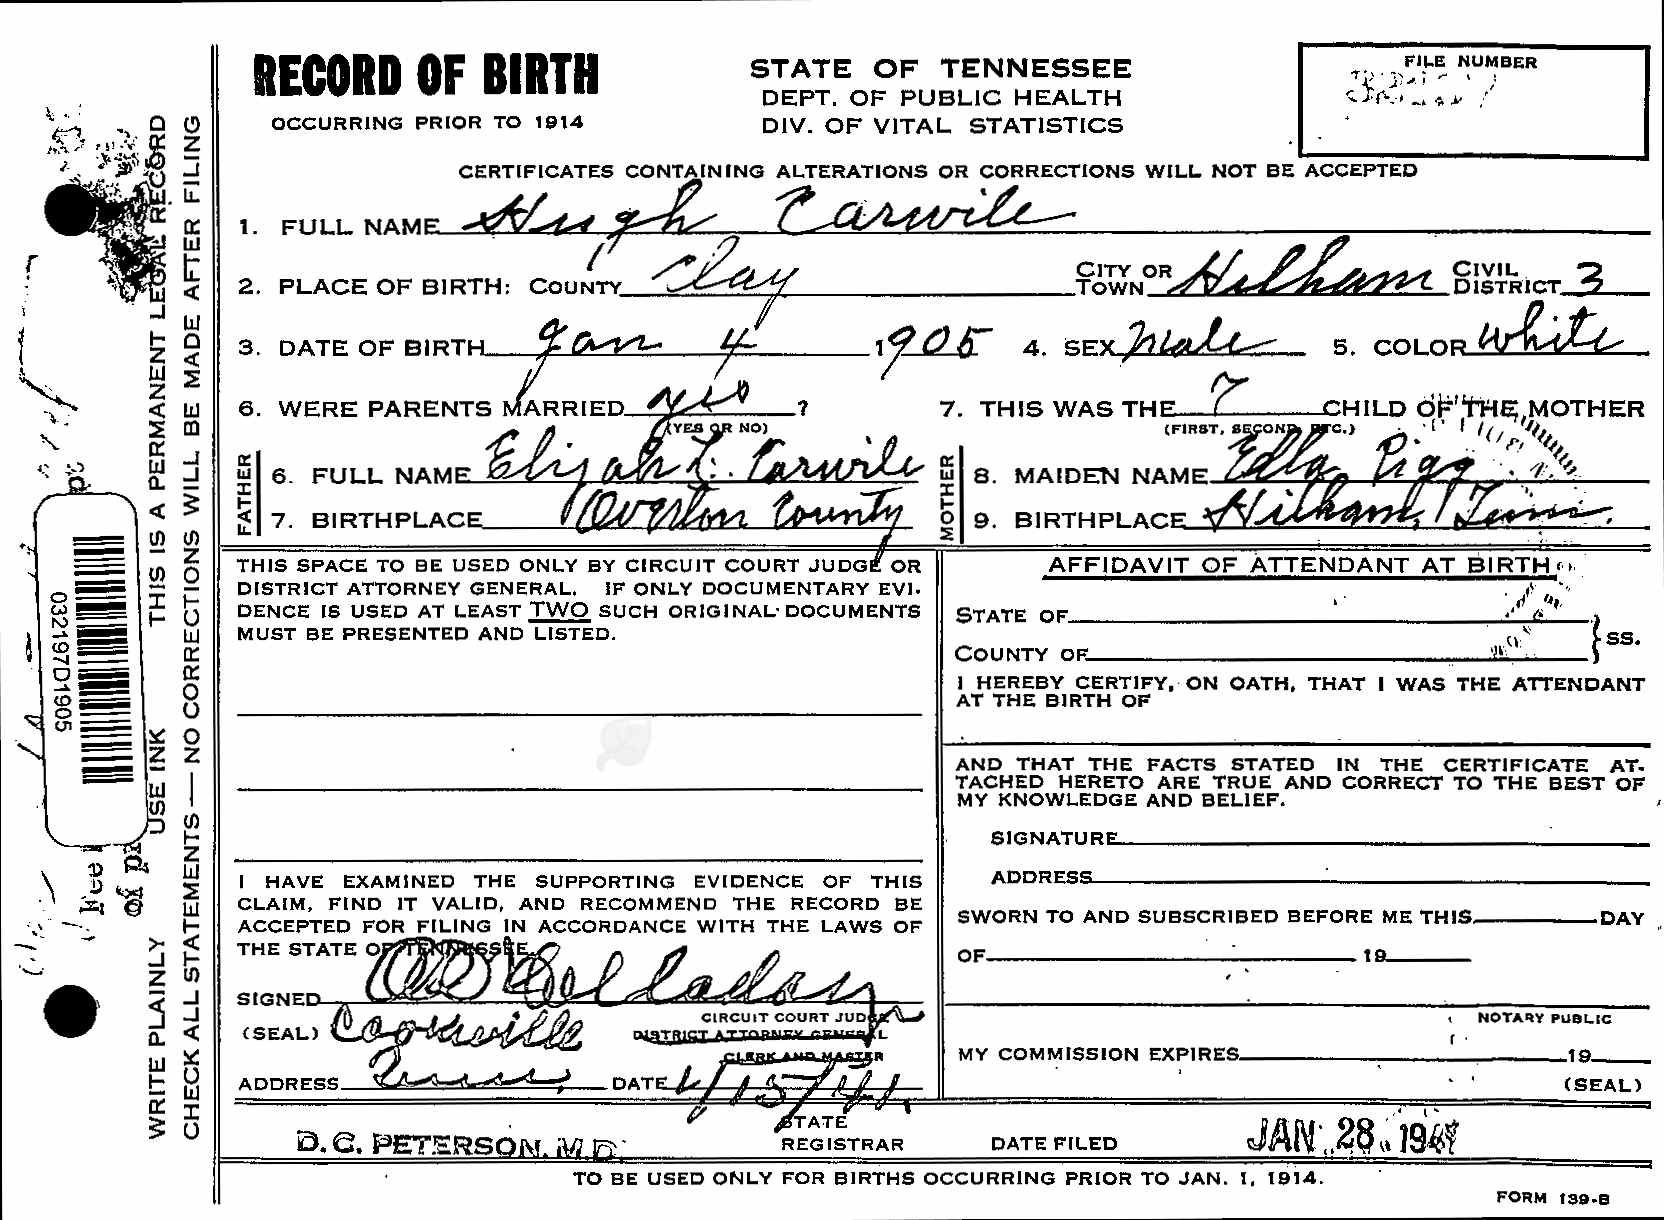 RECORD OF BIRTH
OCCURRING PRIOR TO 1914
STATE OF TENNESSEE
DEPT. OF PUBLIC HEALTH
DIV. OF VITAL STATISTICS
FILE NUMBER
CERTIFICATES CONTAINING ALTERATIONS OR CORRECTIONS WILL NOT BE ACCEPTED
1. FULL NAME Hugh Carwile
2. PLACE OF BIRTH: COUNTY Clay CITY OR TOWN Hilham CIVIL DISTRICT 3
3. DATE OF BIRTH Jan 4 1905 4. SEX Male 5. COLOR White
6. WERE PARENTS MARRIED yes ? 7. THIS WAS THE 7 CHILD OF THE MOTHER
(YES OR NO) (FIRST, SECOND, ETC.)
FATHER
6. FULL NAME Elijah L. Carwile
7. BIRTHPLACE Overton County
MOTHER
8. MAIDEN NAME Edla Pigg
9. BIRTHPLACE Hilham, Tenn.
THIS SPACE TO BE USED ONLY BY CIRCUIT COURT JUDGE OR
DISTRICT ATTORNEY GENERAL. IF ONLY DOCUMENTARY EVI-
DENCE IS USED AT LEAST TWO SUCH ORIGINAL DOCUMENTS
MUST BE PRESENTED AND LISTED.
I HAVE EXAMINED THE SUPPORTING EVIDENCE OF THIS
CLAIM, FIND IT VALID, AND RECOMMEND THE RECORD BE
ACCEPTED FOR FILING IN ACCORDANCE WITH THE LAWS OF
THE STATE OF TENNESSEE.
SIGNED
CIRCUIT COURT JUDGE
(SEAL) Cookville
DISTRICT ATTORNEY GENERAL
CLERK AND MASTER
ADDRESS Tenn, DATE 1/15/41.
AFFIDAVIT OF ATTENDANT AT BIRTH
STATE OF
SS.
COUNTY OF
I HEREBY CERTIFY, ON OATH, THAT I WAS THE ATTENDANT
AT THE BIRTH OF
AND THAT THE FACTS STATED IN THE CERTIFICATE AT-
TACHED HERETO ARE TRUE AND CORRECT TO THE BEST OF
MY KNOWLEDGE AND BELIEF.
SIGNATURE
ADDRESS
SWORN TO AND SUBSCRIBED BEFORE ME THIS DAY
OF 19
NOTARY PUBLIC
MY COMMISSION EXPIRES 19
(SEAL)
D. C. PETERSON, M.D. STATE REGISTRAR DATE FILED JAN 28, 1941
TO BE USED ONLY FOR BIRTHS OCCURRING PRIOR TO JAN. 1, 1914.
FORM 139-B
WRITE PLAINLY USE INK THIS IS A PERMANENT LEGAL RECORD
CHECK ALL STATEMENTS — NO CORRECTIONS WILL BE MADE AFTER FILING
032197D1905